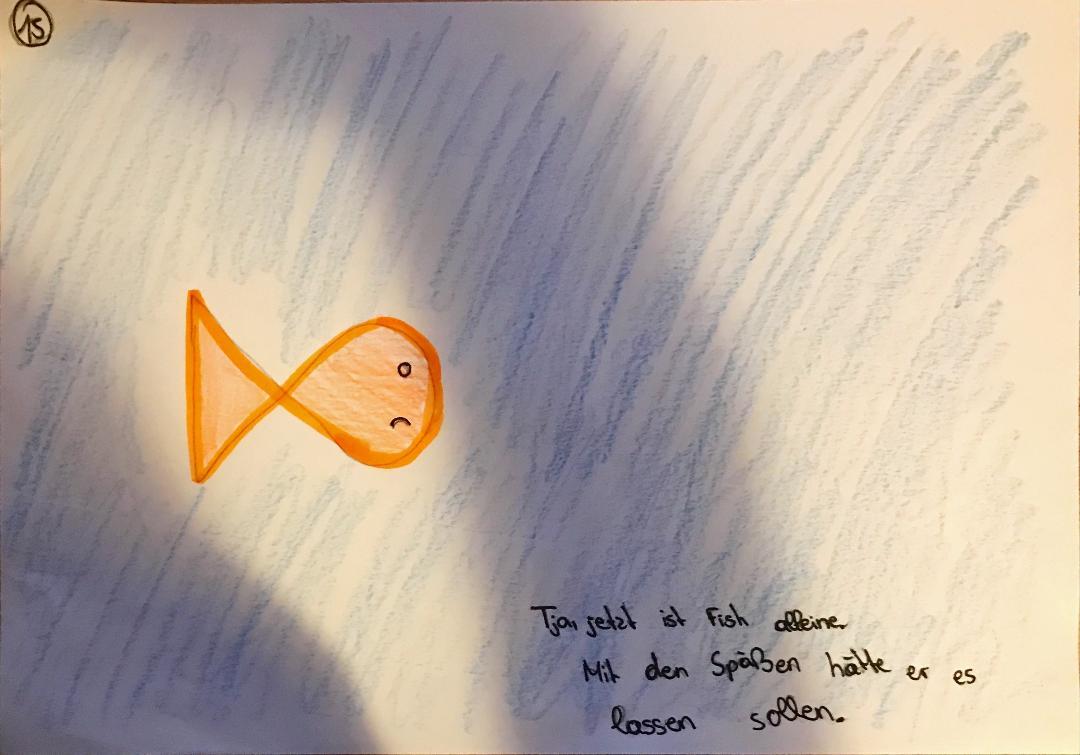 15
Tja, jetzt ist Fish alleine.
Mit den Späßen hätte er es
lassen sollen.